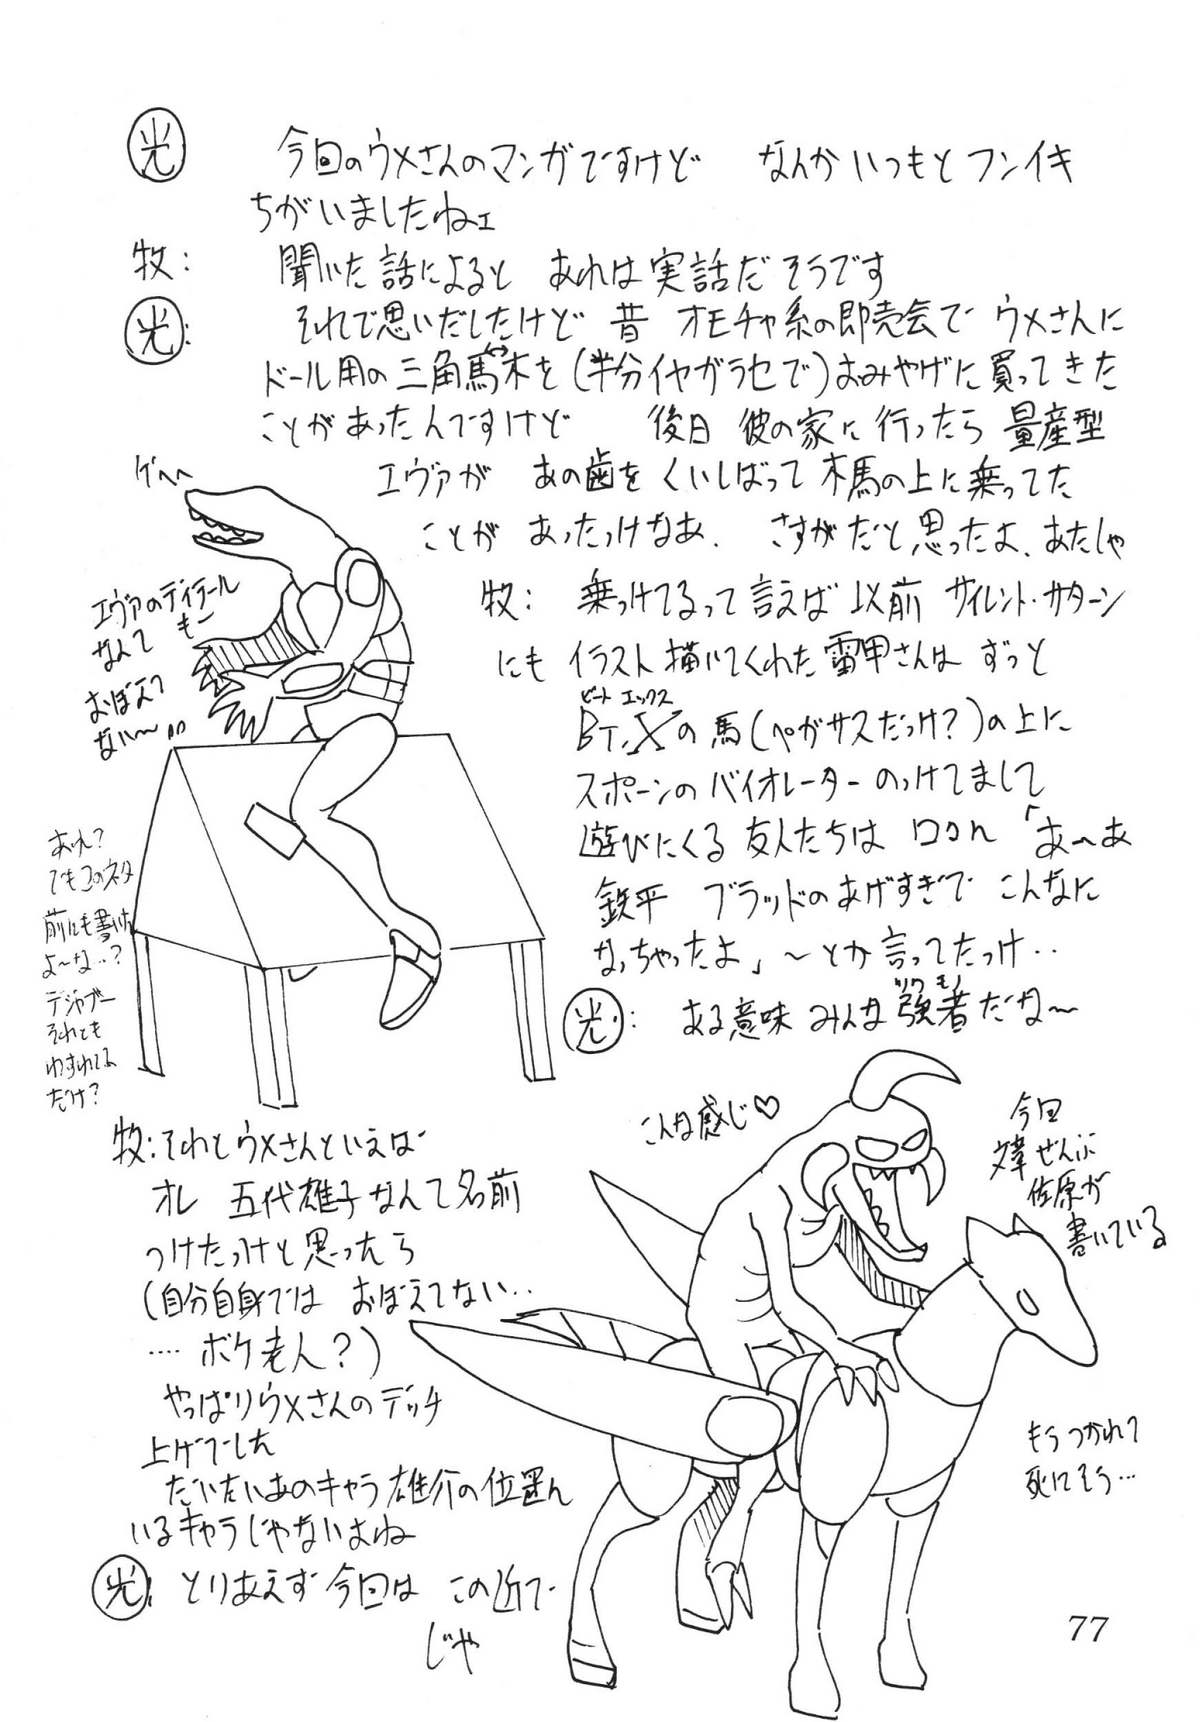 光 今回のウメさんのマンガですけど なんかいつもとフンイキ
ちがいましたねェ
牧: 聞いた話によると あれは実話だそうです
光: それで思いだしたけど 昔 オモチャ系の即売会で ウメさんに
ドール用の三角馬木を(半分イヤガラセで)おみやげに買ってきた
ことがあったんですけど 後日 彼の家に行ったら 量産型
エヴァが あの歯をくいしばって木馬の上に乗ってた
ことが あったっけなあ、さすがだと思ったよ、あたしゃ
ゲヘヘ
エヴァのディテール
なんて もー
おぼえて
ない〜
牧: 乗っけてるって言えば 以前 サイレント・サターン
にも イラスト描いてくれた雷甲さんは ずっと
ビート エックス
BT,Xの馬(ペガサスだっけ?)の上に
スポーンのバイオレーターのっけてまして
遊びにくる友人たちは 口々に「あ〜あ
鉄平 ブラッドのあげすぎで こんなに
なっちゃったよ」〜とか言ってたっけ..
あれ?
でもこのネタ
前にも書いた
よ〜な..?
デジャブー
それとも
わすれてる
だけ?
光: ある意味 みんな強者だな〜
ツワモノ
牧:それとウメさんといえば
オレ 五代雄子なんて名前
つけたっけと思ったら
(自分自身では おぼえてない..
....ボケ老人?)
やっぱりウメさんのデッチ
上げでした
だいたいあのキャラ雄介の位置に
いるキャラじゃないよね
光: とりあえず今回は この辺で
じゃ
こんな感じ♡
今回
文章ぜんぶ
佐原が
書いている
もうつかれて
死にそう...
77